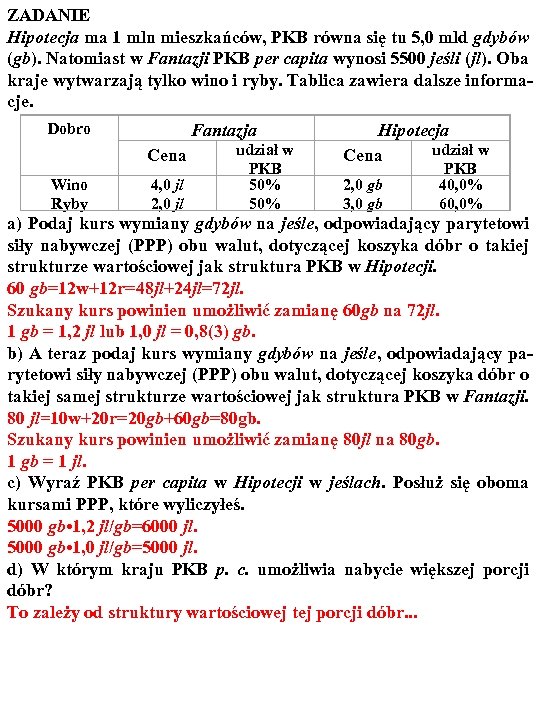 ZADANIE
Hipotecja ma 1 mln mieszkańców, PKB równa się tu 5,0 mld gdybów
(gb). Natomiast w Fantazji PKB per capita wynosi 5500 jeśli (jl). Oba
kraje wytwarzają tylko wino i ryby. Tablica zawiera dalsze informa-
cje.
Dobro Fantazja Hipotecja
Cena udział w PKB Cena udział w PKB
Wino 4,0 jl 50% 2,0 gb 40,0%
Ryby 2,0 jl 50% 3,0 gb 60,0%
a) Podaj kurs wymiany gdybów na jeśle, odpowiadający parytetowi
siły nabywczej (PPP) obu walut, dotyczącej koszyka dóbr o takiej
strukturze wartościowej jak struktura PKB w Hipotecji.
60 gb=12w+12r=48jl+24jl=72jl.
Szukany kurs powinien umożliwić zamianę 60gb na 72jl.
1 gb = 1,2 jl lub 1,0 jl = 0,8(3) gb.
b) A teraz podaj kurs wymiany gdybów na jeśle, odpowiadający pa-
rytetowi siły nabywczej (PPP) obu walut, dotyczącej koszyka dóbr o
takiej samej strukturze wartościowej jak struktura PKB w Fantazji.
80 jl=10w+20r=20gb+60gb=80gb.
Szukany kurs powinien umożliwić zamianę 80jl na 80gb.
1 gb = 1 jl.
c) Wyraź PKB per capita w Hipotecji w jeślach. Posłuż się oboma
kursami PPP, które wyliczyłeś.
5000 gb•1,2 jl/gb=6000 jl.
5000 gb•1,0 jl/gb=5000 jl.
d) W którym kraju PKB p. c. umożliwia nabycie większej porcji
dóbr?
To zależy od struktury wartościowej tej porcji dóbr...